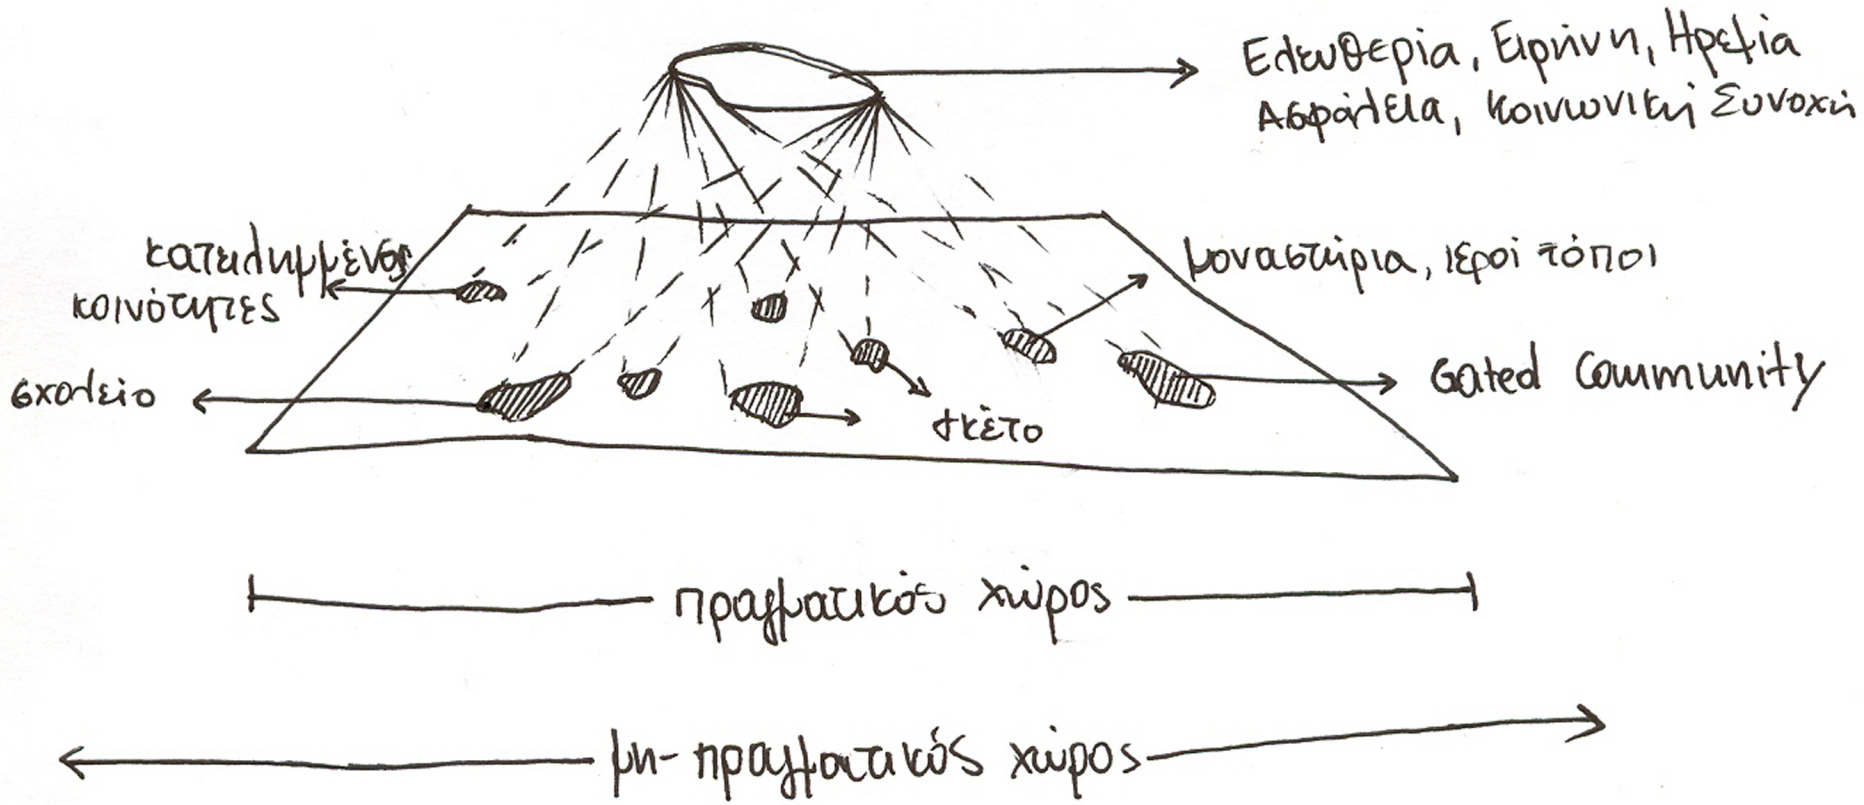 Ελευθερία, Ειρήνη, Ηρεμία
Ασφάλεια, Κοινωνική Συνοχή
κατειλημμένες
κοινότητες
μοναστήρια, ιεροί τόποι
σχολείο
Gated Community
γκέτο
πραγματικός χώρος
μη-πραγματικός χώρος